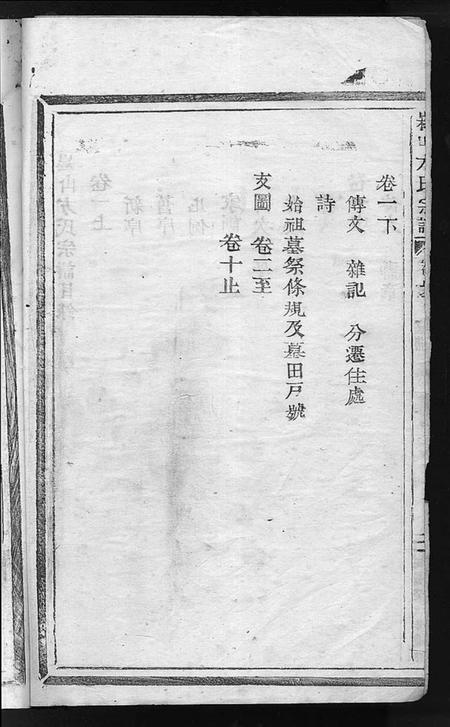 方氏宗譜
卷一下
傳文 雜記 分遷住處
詩
始祖墓祭條規及墓田戸號
支圖 卷二至
卷十止